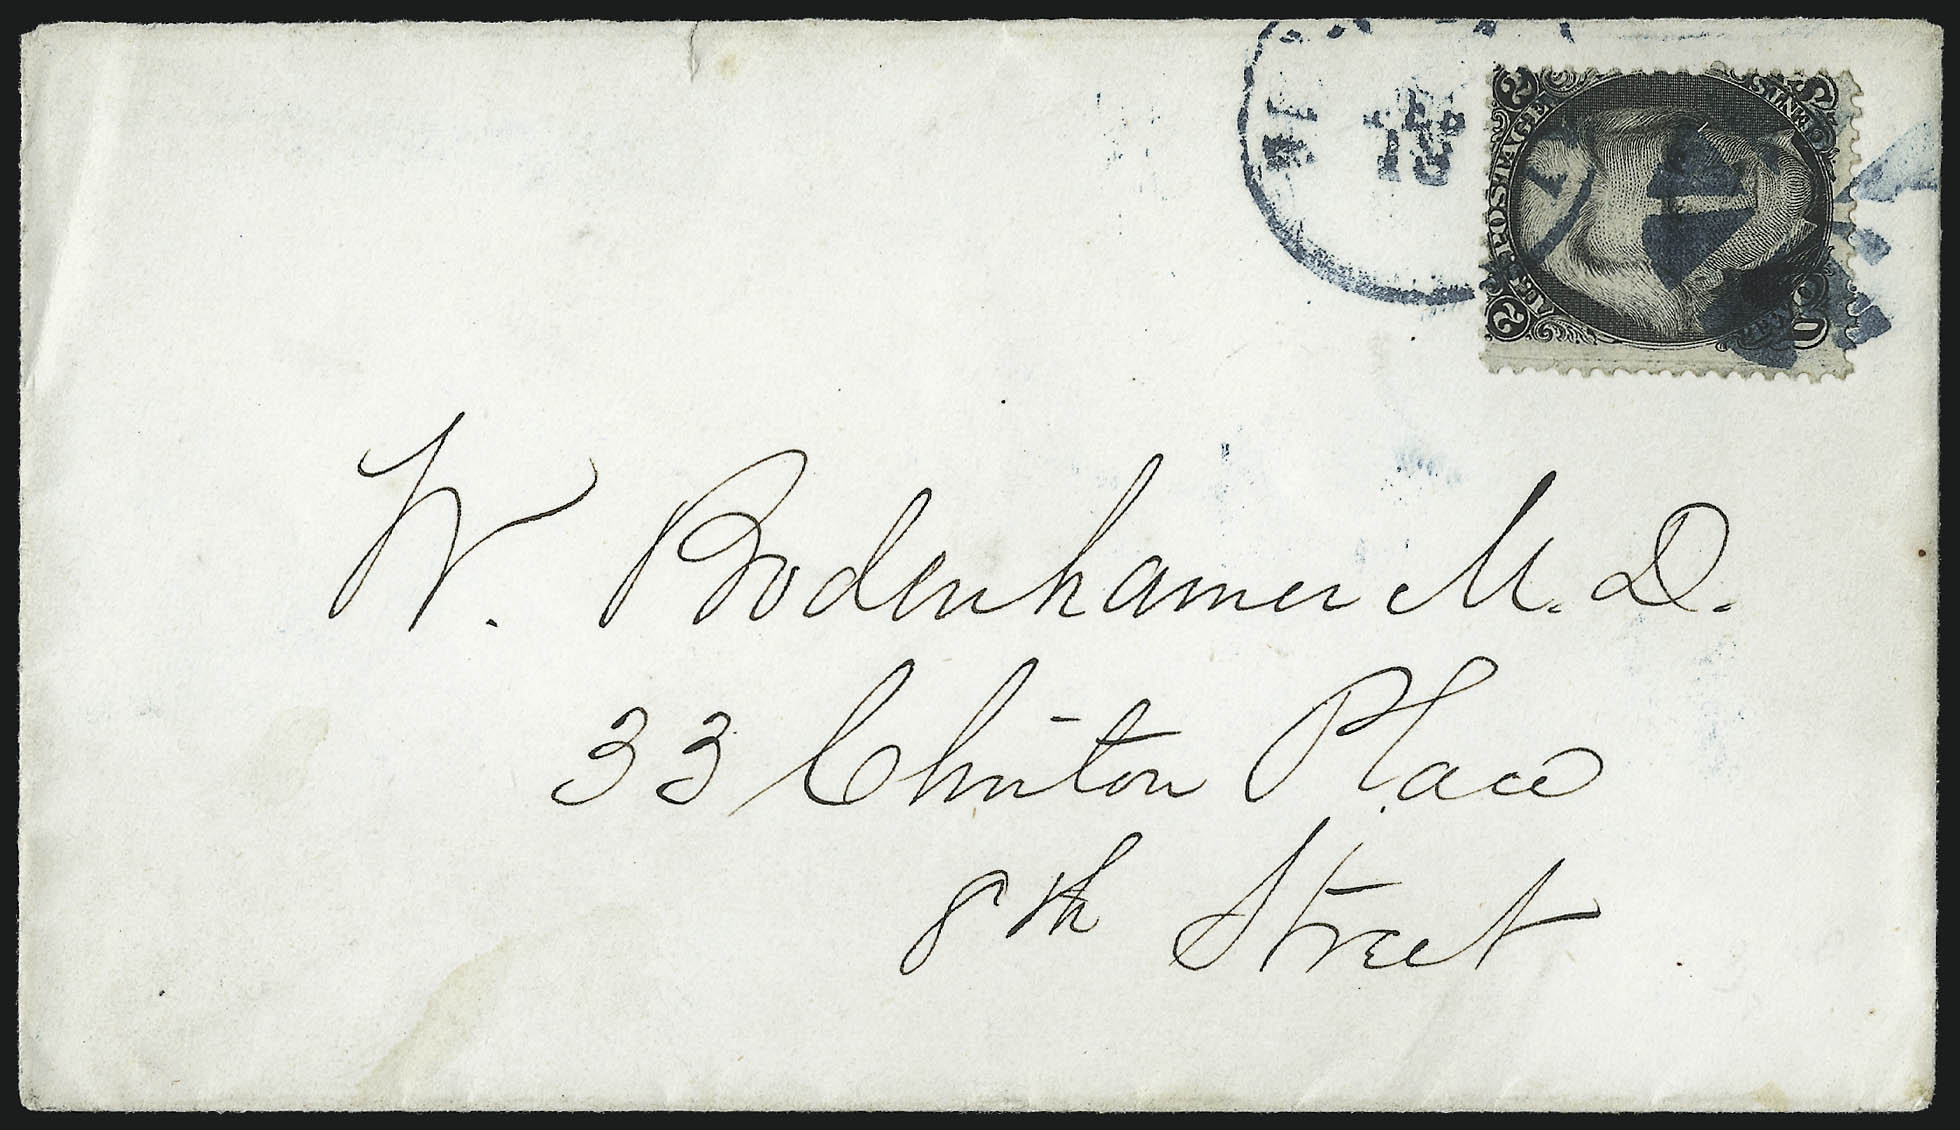 FEB
18
U.S. POSTAGE
2
2
CENTS
W. Bodenhamer M. D.
33 Clinton Place
8th Street